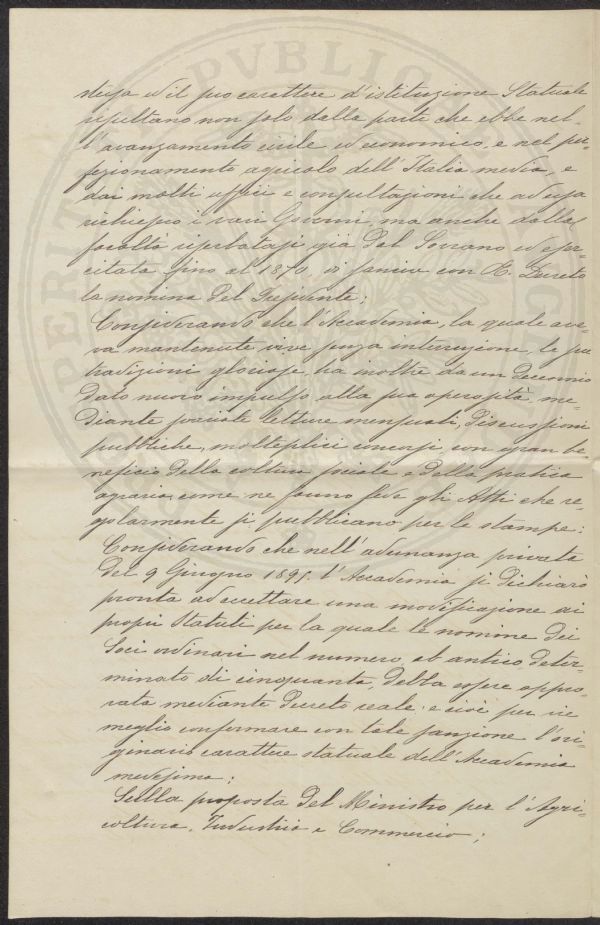 stessa ed il suo carattere d'istituzione Statuale
risultano non solo dalla parte che ebbe nel-
l'avanzamento civile ed economico, e nel per-
fezionamento agricolo dell'Italia media, e
dai molti uffici e consultazioni che ad essa
richiesero i varii Governi ma anche dalla
facoltà riserbatasi già dal Sovrano ed eser-
citata fino al 1870, di sancire con R. Decreto
la nomina del Presidente;
Considerando che l'Accademia, la quale ave-
va mantenute vive senza interruzione, le sue
tradizioni gloriose, ha inoltre da un decennio
dato nuovo impulso alla sua operosità me-
diante svariate letture mensuali, discussioni
pubbliche, molteplici concorsi, con gran be
neficio della coltura sociale e della pratica
agraria, come ne fanno fede gli Atti che re-
golarmente si pubblicano per le stampe:
Considerando che nell'adunanza privata
del 9 Giugno 1895. l'Accademia si dichiarò
pronta ad accettare una modificazione ai
propri Statuti per la quale le nomine dei
Soci ordinari nel numero ab antico deter-
minato di cinquanta, debba essere appro-
vata mediante Decreto reale: e ciò per vie
meglio confermare con tale sanzione l'ori-
ginario carattere statuale dell'Accademia
medesima;
Sulla proposta del Ministro per l'Agri-
coltura, Industria e Commercio;
PERITI PVBLICAE